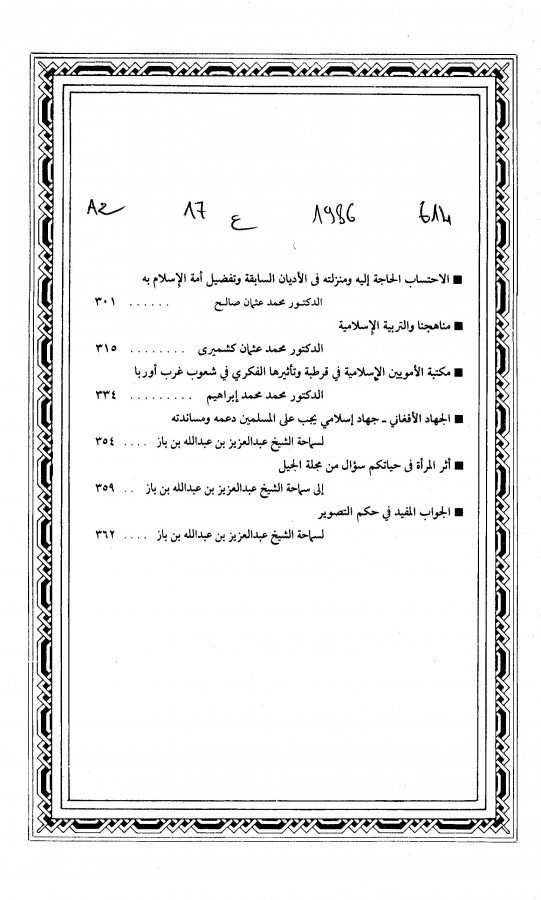 614 1986 ع 17 A2
■ الاحتساب الحاجة إليه ومنزلته فى الأديان السابقة وتفضيل أمة الإسلام به
الدكتور محمد عثمان صالح ...... ٣٠١
■ مناهجنا والتربية الإسلامية
الدكتور محمد عثمان كشميرى ........ ٣١٥
■ مكتبة الأمويين الإسلامية في قرطبة وتأثيرها الفكري في شعوب غرب أوربا
الدكتور محمد محمد إبراهيم ......... ٣٣٤
■ الجهاد الأفغاني ـ جهاد إسلامي يجب على المسلمين دعمه ومساندته
لسماحة الشيخ عبدالعزيز بن عبدالله بن باز .... ٣٥٤
■ أثر المرأة فى حياتكم سؤال من مجلة الجيل
إلى سماحة الشيخ عبدالعزيز بن عبدالله بن باز .. ٣٥٩
■ الجواب المفيد في حكم التصوير
لسماحة الشيخ عبدالعزيز بن عبدالله بن باز .... ٣٦٢